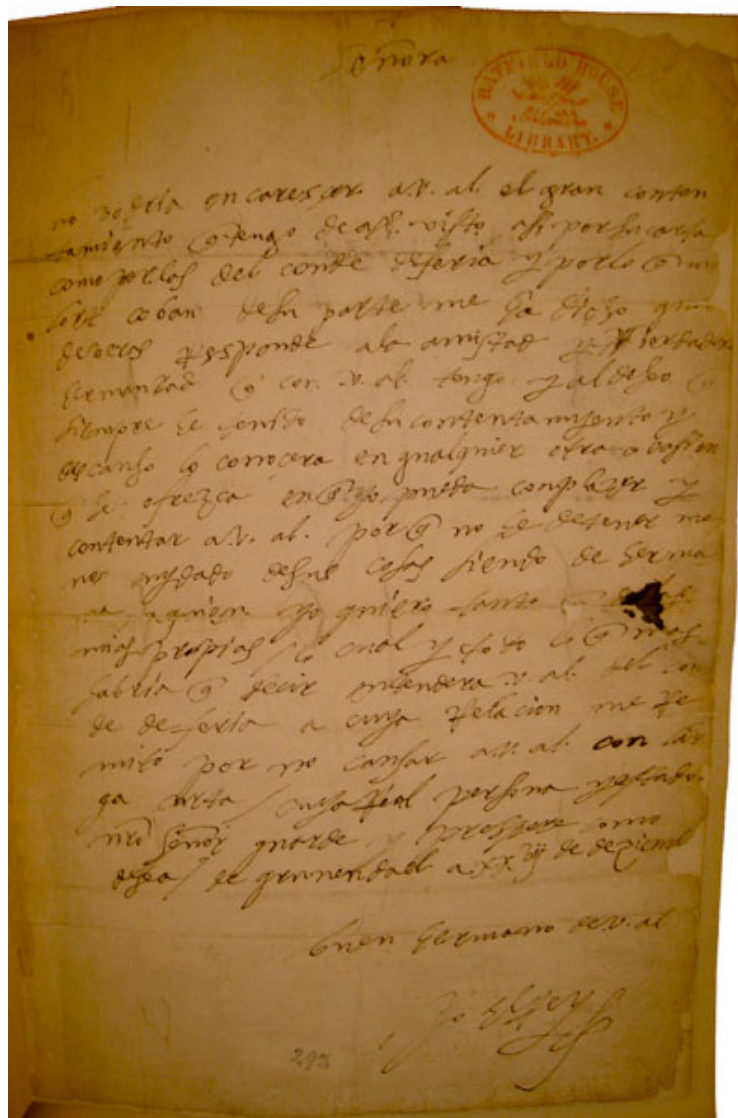 Señora
HATFIELD HOUSE
LIBRARY.
no podria encarescer a v. al. el gran conten
tamiento q tengo de aver visto asi por su carta
como por las del conde de feria y por lo q mi
lort coban de su parte me ha dicho quan
de veras responde a la amistad y verdadera
hermandad q con v. al. tengo y al deseo q
siempre he tenido de su contentamiento y
descanso lo conocera en qualquier otra ocasion
q se ofrezca en q yo pueda complazer y
contentar a v. al. porq no he de tener me
nos cuydado de sus cosas siendo de herma
na a quien yo quiero tanto q de las
mias propias / lo cual y todo lo q mas
habria q decir entendera v. al. del con
de de feria a cuya relacion me re
mito por no cansar a v. al. con lar
ga carta / cuya Real persona y estado
nro señor guarde y prospere como
desea / de grunendael a xx de deziem
buen hermano de v. al
Yo el Rey
292